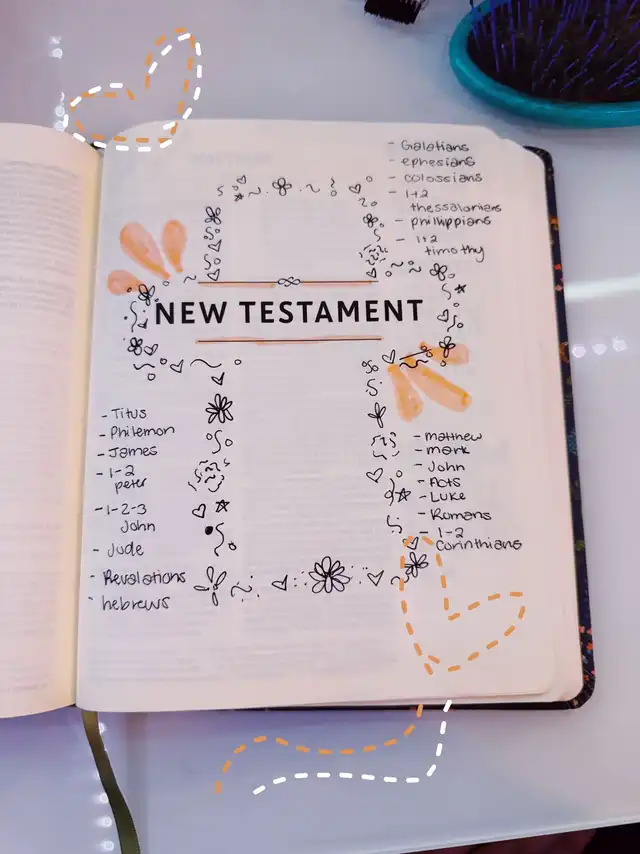 - Galatians
- ephesians
- colossians
- 1+2
thessalonians
- phillippians
- 1+2
timothy
NEW TESTAMENT
- Titus
- Philemon
- James
- 1-2
peter
- 1-2-3
John
- Jude
- Revalations
- hebrews
- matthew
- mark
- John
- Acts
- Luke
- Romans
- 1-2
Corinthians